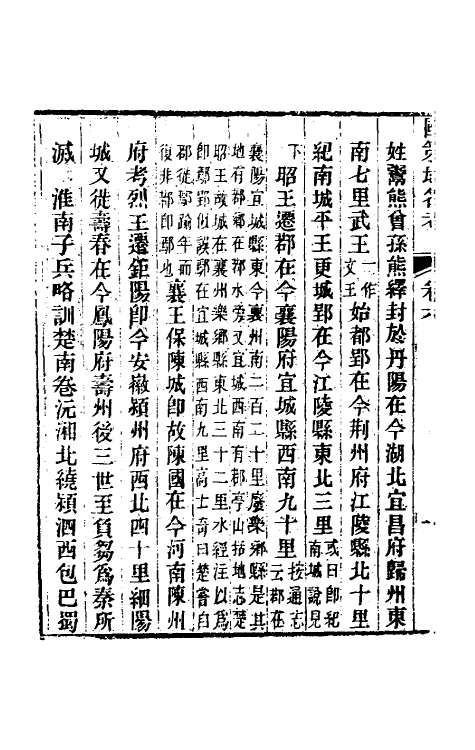 國策地名考 卷六 一
姓鬻熊曾孫熊繹封於丹陽在今湖北宜昌府歸州東
南七里武王一作文王始都郢在今荆州府江陵縣北十里
紀南城平王更城郢在今江陵縣東北三里或曰郎紀南城說見
下昭王遷鄀在今襄陽府宜城縣西南九十里按通志云鄀在
襄陽宜城縣東今襄州南二百二十里廢樂鄉縣是其
地有鄀鄉在鄀水旁又宜城西南有鄀亭山括地志楚
昭王故城在襄州樂鄉縣東北三十二里水經注以爲
卽鄢郢但誤鄢在宜城縣西南九里高士奇曰楚嘗自
鄀徙鄢踰年而復非鄀卽鄢也襄王保陳城卽故陳國在今河南陳州
府考烈王遷鉅陽卽今安徽潁州府西北四十里細陽
城又徙壽春在今鳳陽府壽州後三世至負芻爲秦所
滅 淮南子兵略訓楚南卷沅湘北繞潁泗西包巴蜀